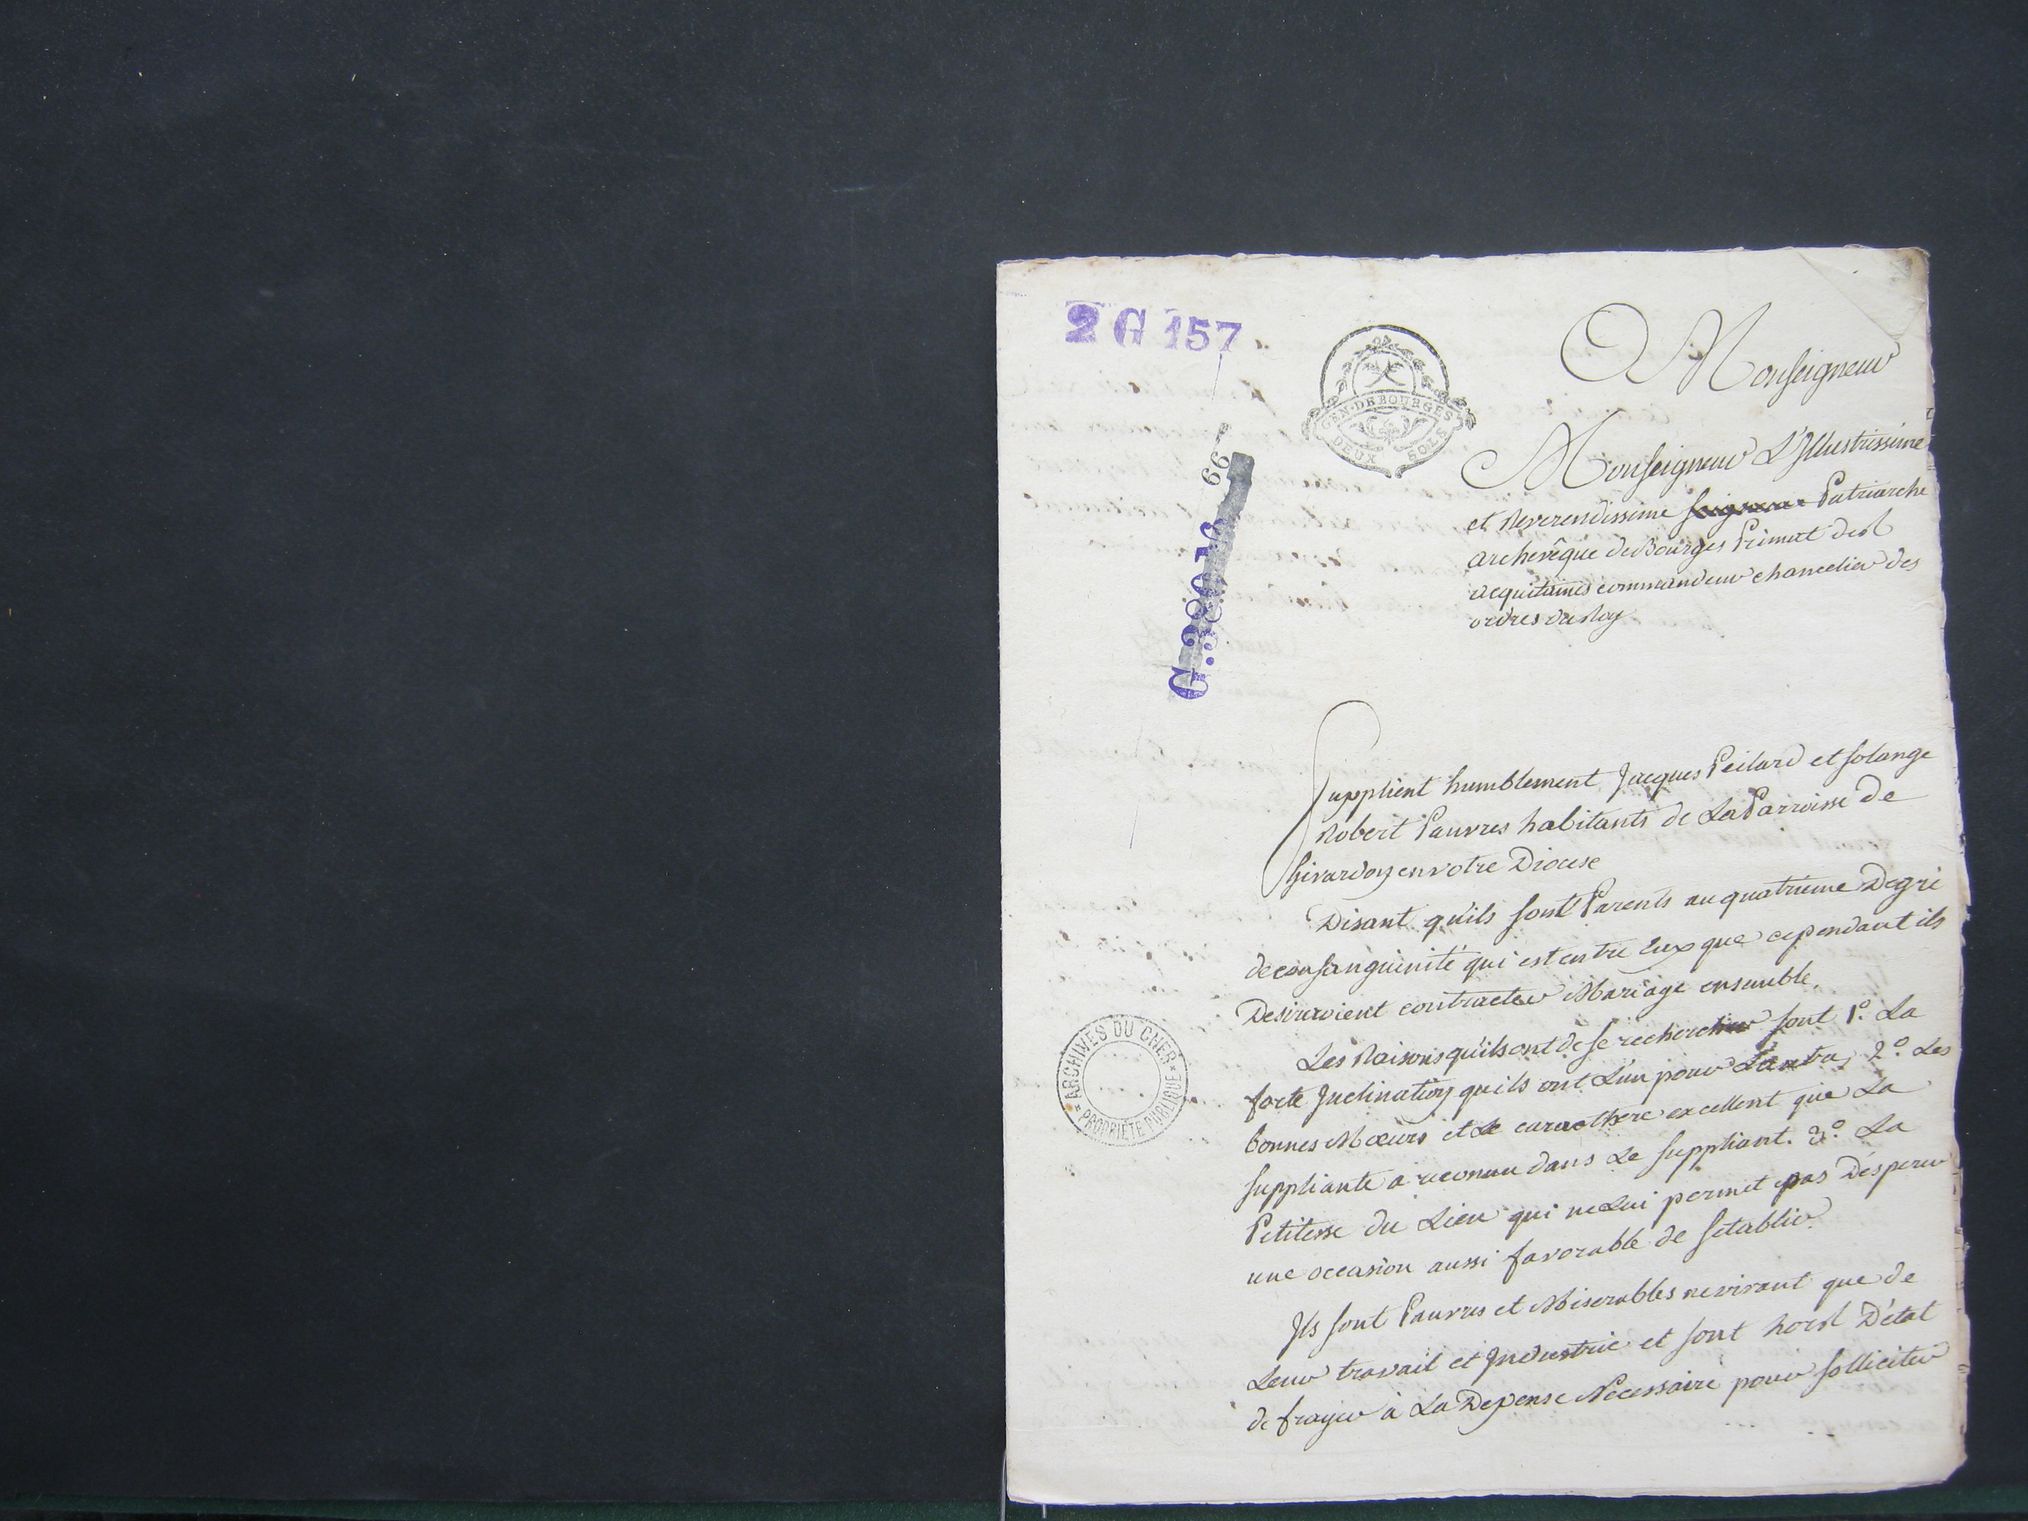 2 G 157
GEN·DE BOURGES
DEUX SOLS
99
Monseigneur
Monseigneur L'Illustrissime
et Reverendissime Seigneur Patriarche
archevêque de Bourges Primat des
acquitaines commandeur chancelier des
ordres du Roy
Supplient humblement Jacques Peilard et Solange
Robert Pauvres habitants de La Parroisse de
Givardon en votre Diocese
Disant qu'ils sont Parents au quatrieme Degré
de consanguinité qui est entre Eux que cependant ils
Desireroient contracter Mariage ensemble.
Les Raisons qu'ils ont de se rechercher sont 1º. La
forte Inclination qu'ils ont L'un pour L'autre, 2º. Les
bonnes Mœurs et Le caracthere excellent que La
suppliante a reconnu dans Le suppliant. 3º. La
Petitesse du Lieu qui ne Lui permet pas D'esperer
une occasion aussi favorable de s'etablir.
Ils sont Pauvres et Miserables ne vivant que de
Leur travail et Industrie et sont hors D'état
de frayer à La Depense Necessaire pour solliciter
ARCHIVES DU CHER
PROPRIÉTÉ PUBLIQUE